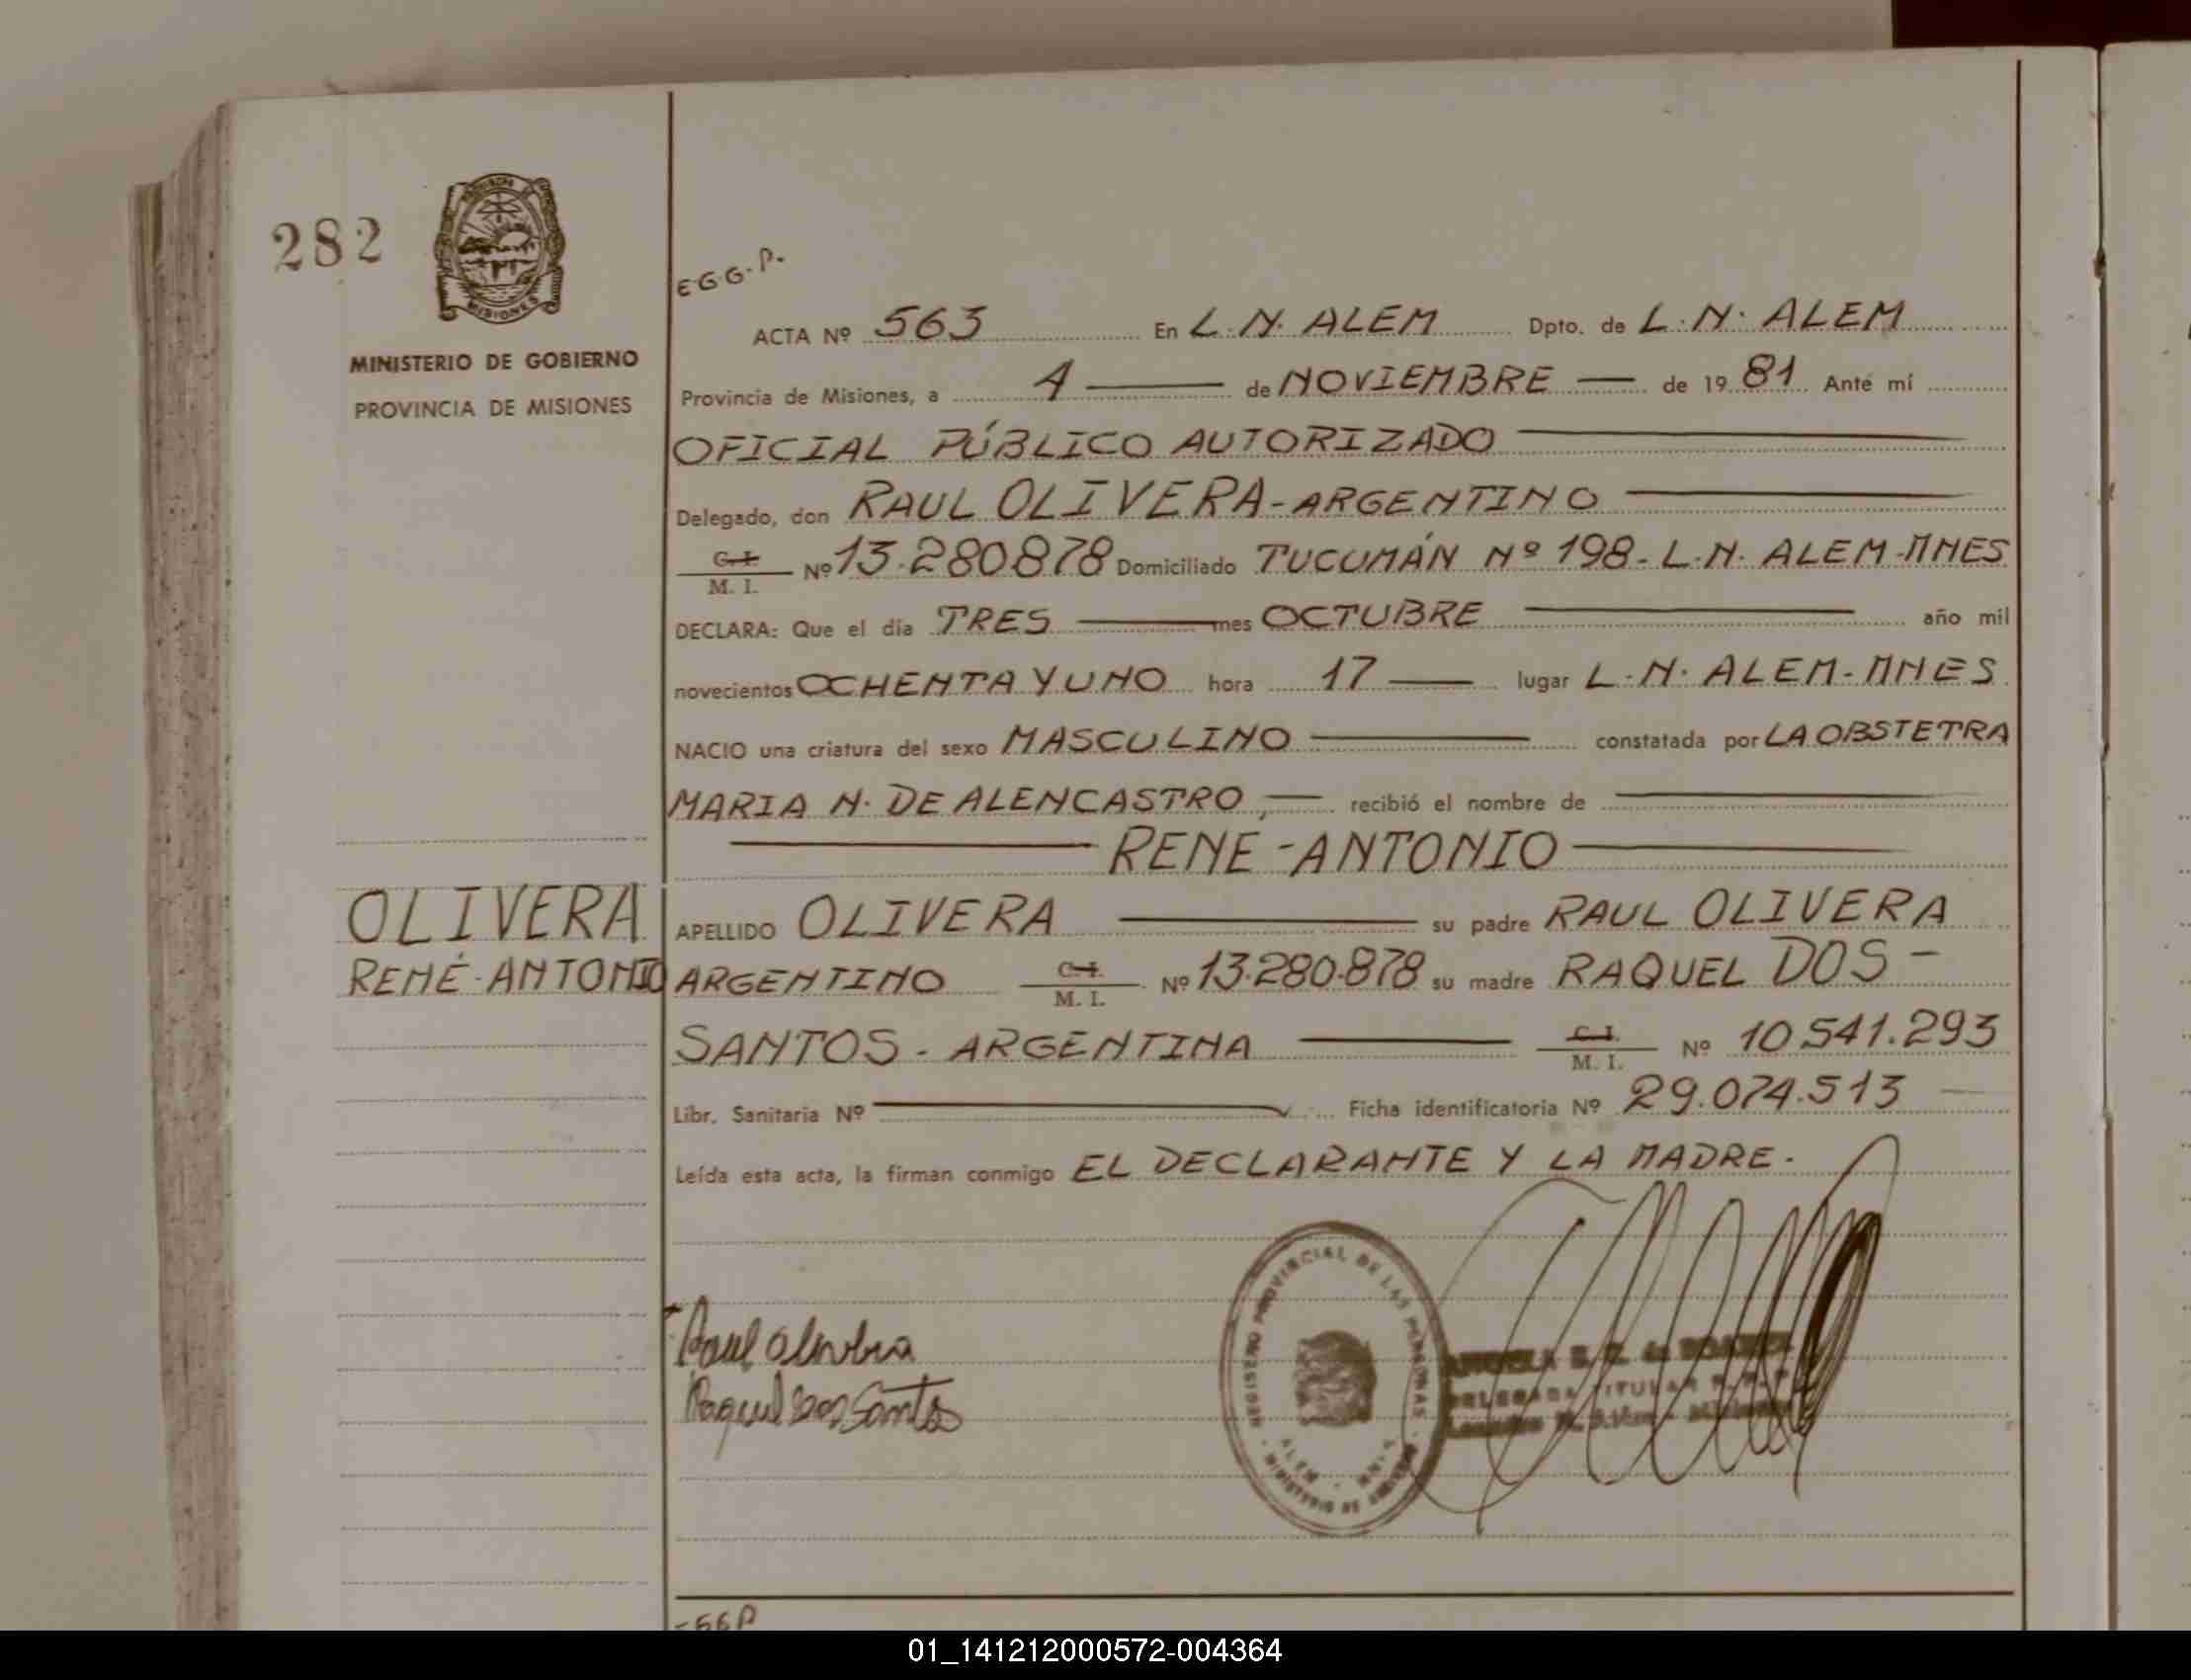 282
PROVINCIA DE
MISIONES
MINISTERIO DE GOBIERNO
PROVINCIA DE MISIONES
E.G.G.P.
ACTA Nº 563 En L.N. ALEM Dpto. de L.N. ALEM
Provincia de Misiones, a 4 de NOVIEMBRE de 1981 Ante mí
OFICIAL PÚBLICO AUTORIZADO
Delegado, don RAUL OLIVERA-ARGENTINO
C. I.
M. I. Nº 13.280878 Domiciliado TUCUMÁN Nº 198-L.N. ALEM-MNES
DECLARA: Que el día TRES mes OCTUBRE año mil
novecientos OCHENTA Y UNO hora 17 lugar L.N. ALEM-MNES
NACIO una criatura del sexo MASCULINO constatada por LA OBSTETRA
MARIA N. DE ALENCASTRO, recibió el nombre de
RENE-ANTONIO
OLIVERA
RENÉ-ANTONIO
APELLIDO OLIVERA su padre RAUL OLIVERA
ARGENTINO C. I. M. I. Nº 13.280.878 su madre RAQUEL DOS-
SANTOS-ARGENTINA C. I. M. I. Nº 10541.293
Libr. Sanitaria Nº Ficha identificatoria Nº 29.074.513
Leída esta acta, la firman conmigo EL DECLARANTE Y LA MADRE.
Raul Olivera
Raquel Dos Santos
REGISTRO PROVINCIAL DE LAS PERSONAS
ALEM
DELEGADA TITULAR
01_141212000572-004364